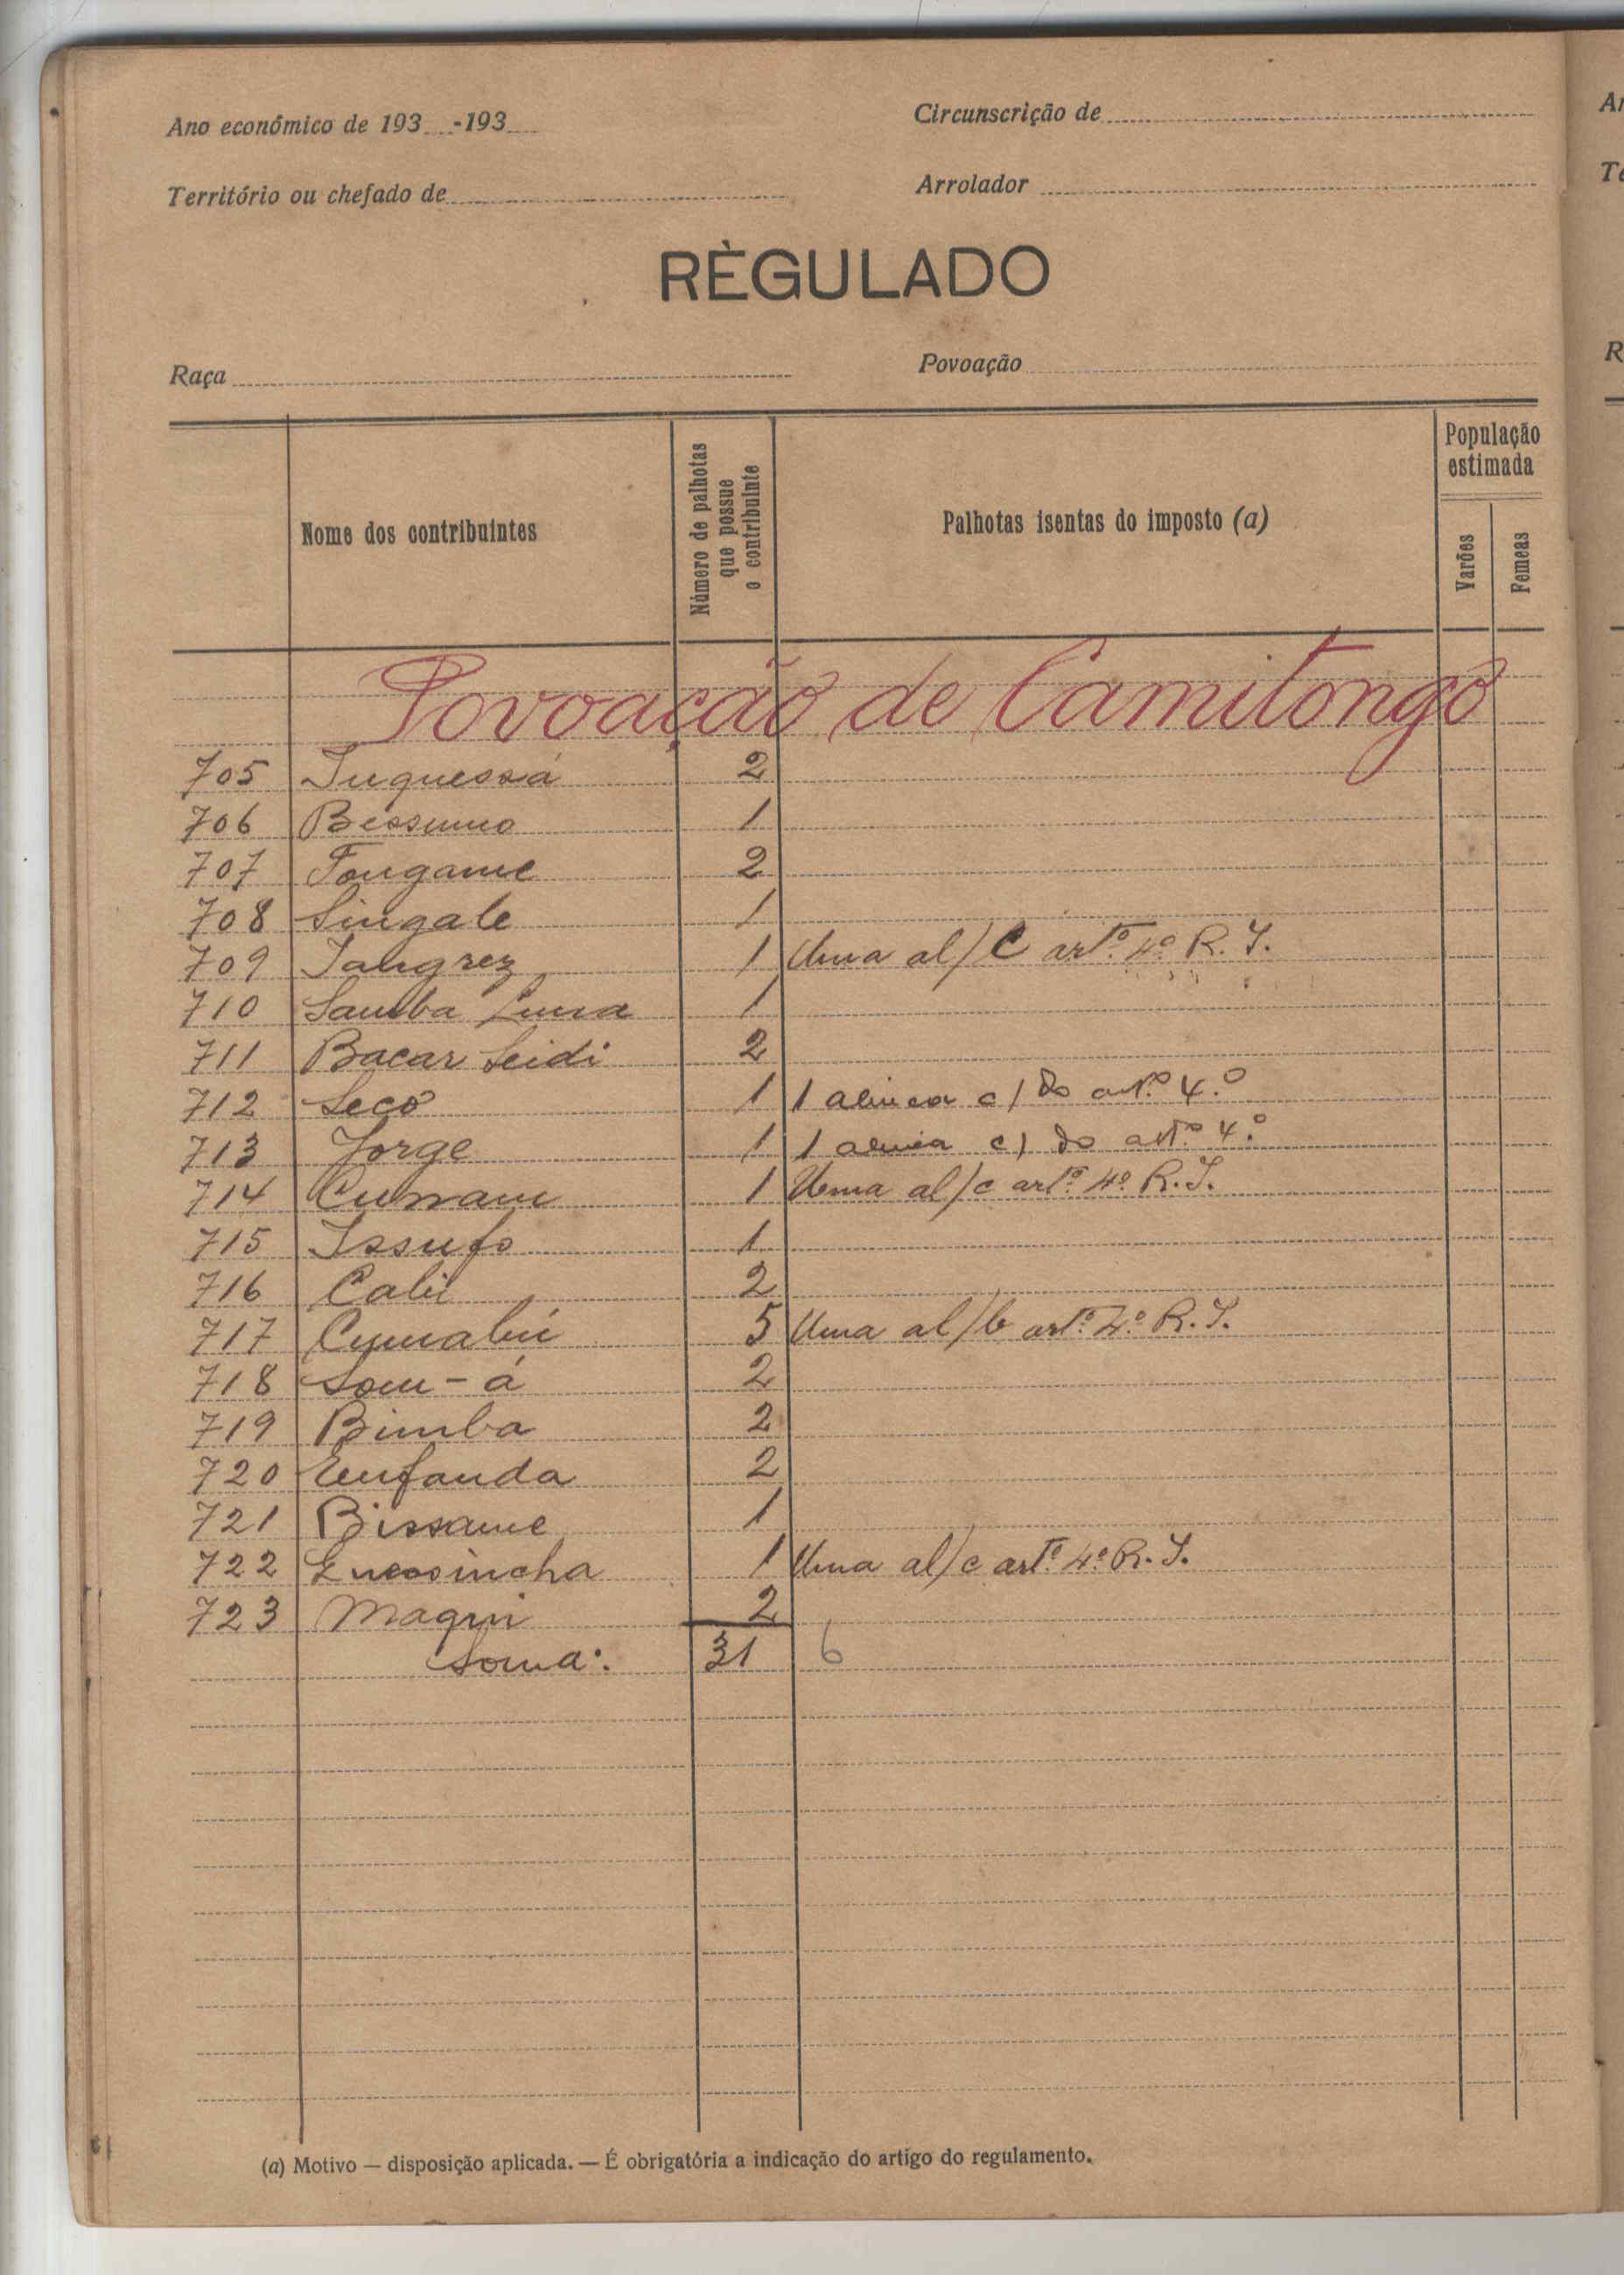 Ano económico de 193 -193
Circunscrição de
Território ou chefado de
Arrolador
RÈGULADO
Raça
Povoação
Nome dos contribuintes
Número de palhotas que possue o contribuinte
Palhotas isentas do imposto (a)
População estimada
Varões
Femeas
Povoação de Camitongo
705 Tuquessá 2
706 Bessumo 1
707 Fongame 2
708 Singale 1
709 1 Uma al/C artº. 4º R. I.
710 Samba 1
711 Bacar Seidi 2
712 Secó 1 1 alinea c) do artº. 4.º
713 Jorge 1 1 alinea c) do artº. 4.º
714 1 Uma al/c artº. 4º R. I.
715 Issufo 1
716 Cabi 2
717 5 Uma al/b artº. 4º. R. I.
718 Som-á 2
719 Bimba 2
720 Enfanda 2
721 Bissame 1
722 1 Uma al/c artº. 4º R. I.
723 Maqui 2
Soma: 31 6
(a) Motivo — disposição aplicada. — É obrigatória a indicação do artigo do regulamento.